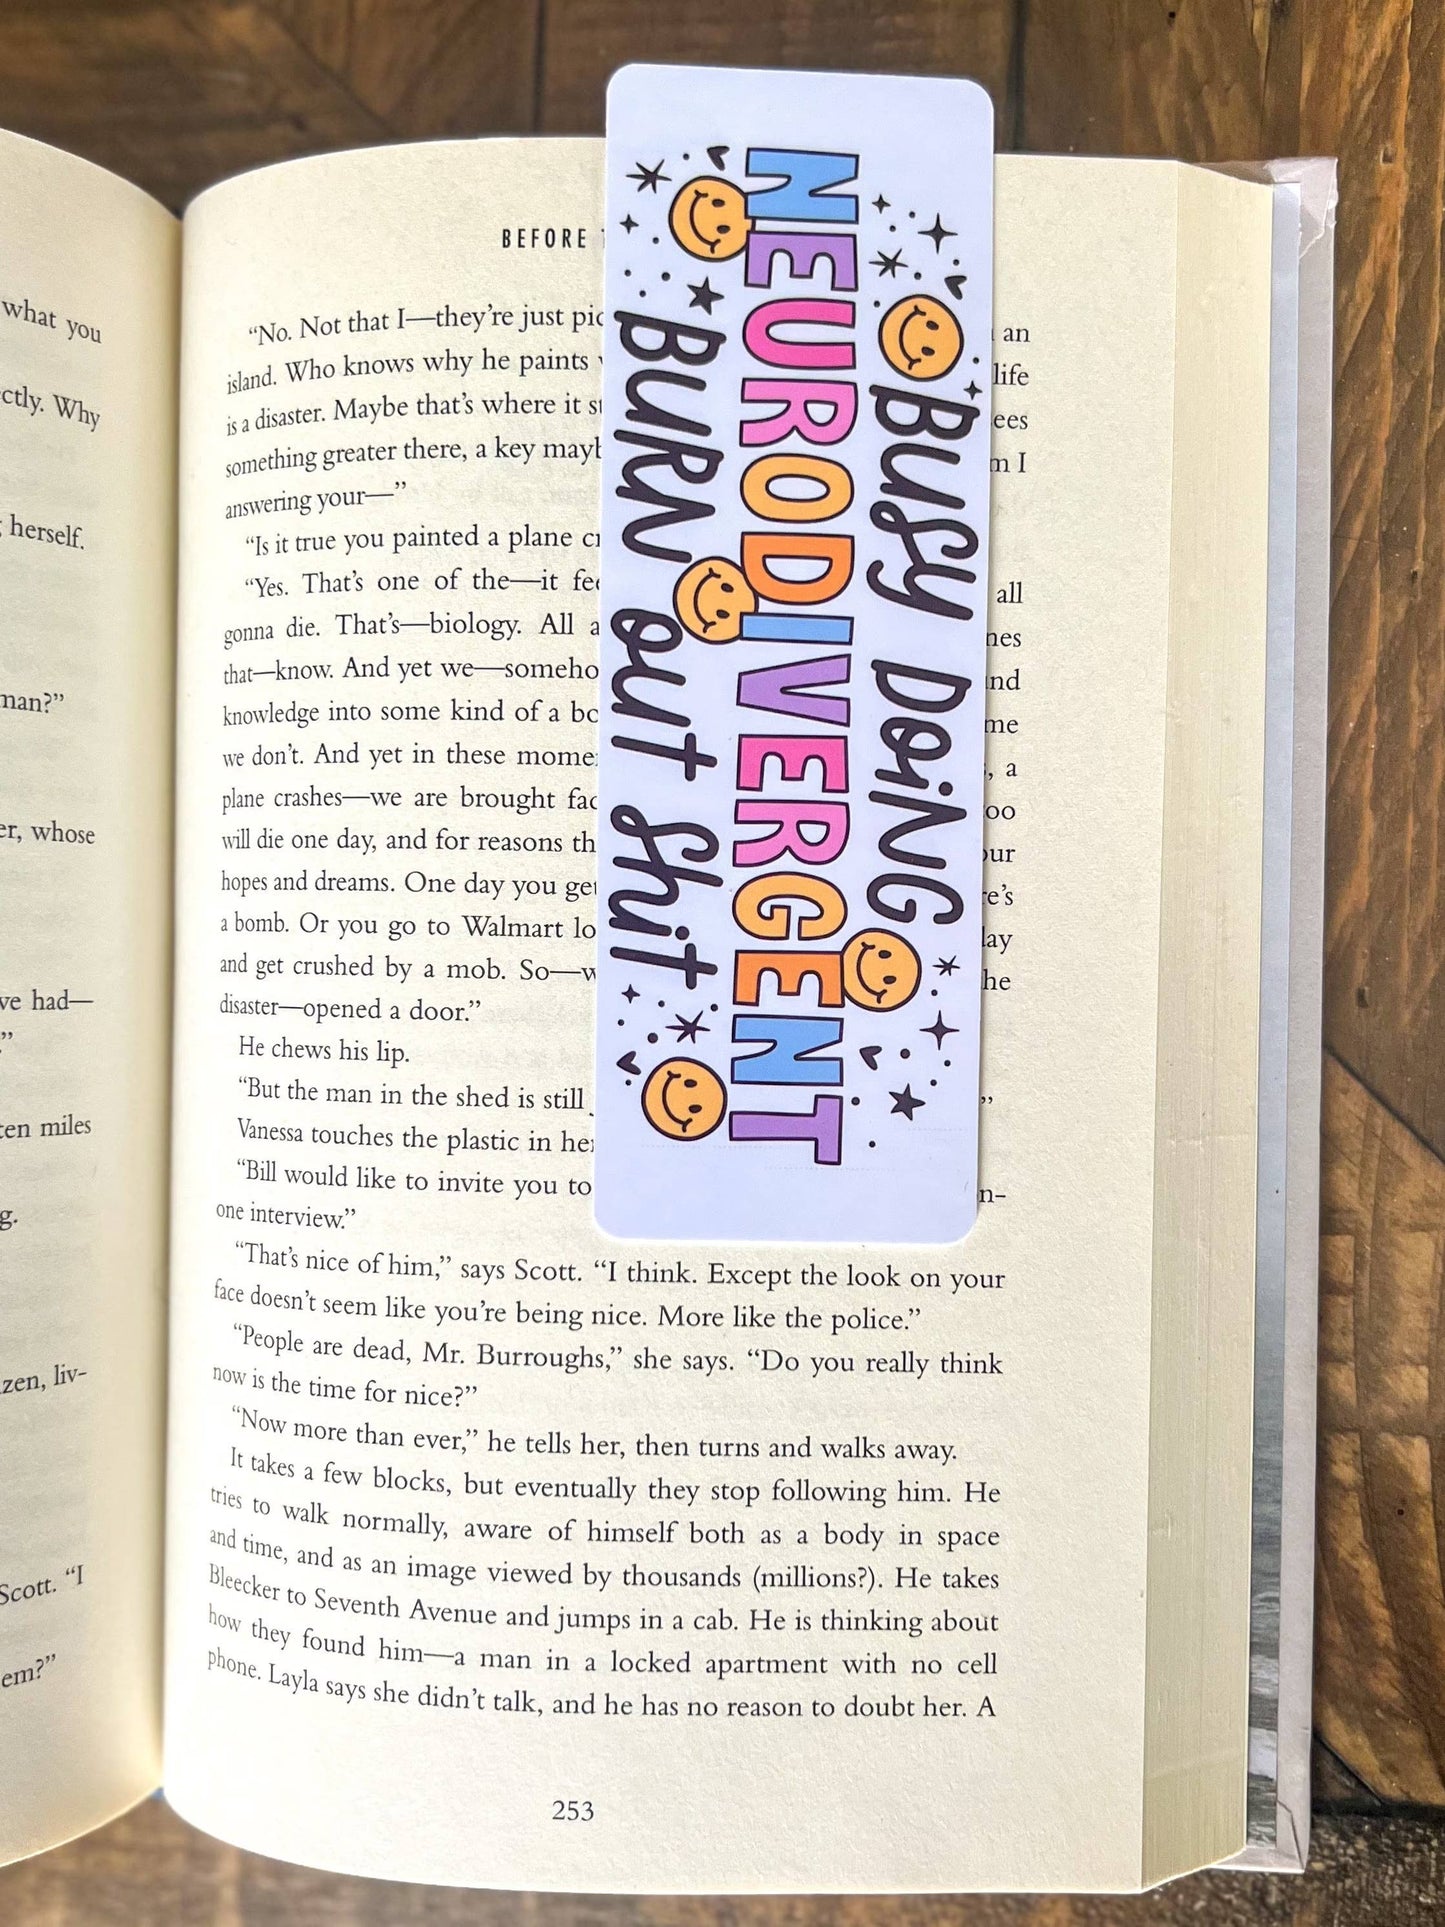 what you
ctly. Why
herself.
man?”
er, whose
ve had—
”
ten miles
g.
zen, liv-
Scott. “I
em?”
BEFORE
“No. Not that I—they’re just pic
an
island. Who knows why he paints
life
is a disaster. Maybe that’s where it st
ees
something greater there, a key mayb
m I
answering your—”
“Is it true you painted a plane cr
“Yes. That’s one of the—it fee
all
gonna die. That’s—biology. All a
nes
that—know. And yet we—someho
and
knowledge into some kind of a bo
me
we don’t. And yet in these mome
, a
plane crashes—we are brought fac
oo
will die one day, and for reasons th
our
hopes and dreams. One day you get
e’s
a bomb. Or you go to Walmart lo
lay
and get crushed by a mob. So—w
he
disaster—opened a door.”
He chews his lip.
“But the man in the shed is still
”
Vanessa touches the plastic in her
“Bill would like to invite you to
n-
one interview.”
“That’s nice of him,” says Scott. “I think. Except the look on your
face doesn’t seem like you’re being nice. More like the police.”
“People are dead, Mr. Burroughs,” she says. “Do you really think
now is the time for nice?”
“Now more than ever,” he tells her, then turns and walks away.
It takes a few blocks, but eventually they stop following him. He
tries to walk normally, aware of himself both as a body in space
and time, and as an image viewed by thousands (millions?). He takes
Bleecker to Seventh Avenue and jumps in a cab. He is thinking about
how they found him—a man in a locked apartment with no cell
phone. Layla says she didn’t talk, and he has no reason to doubt her. A
253
BUSY DOiNG
NEURODIVERGENT
BURN OUT Shit